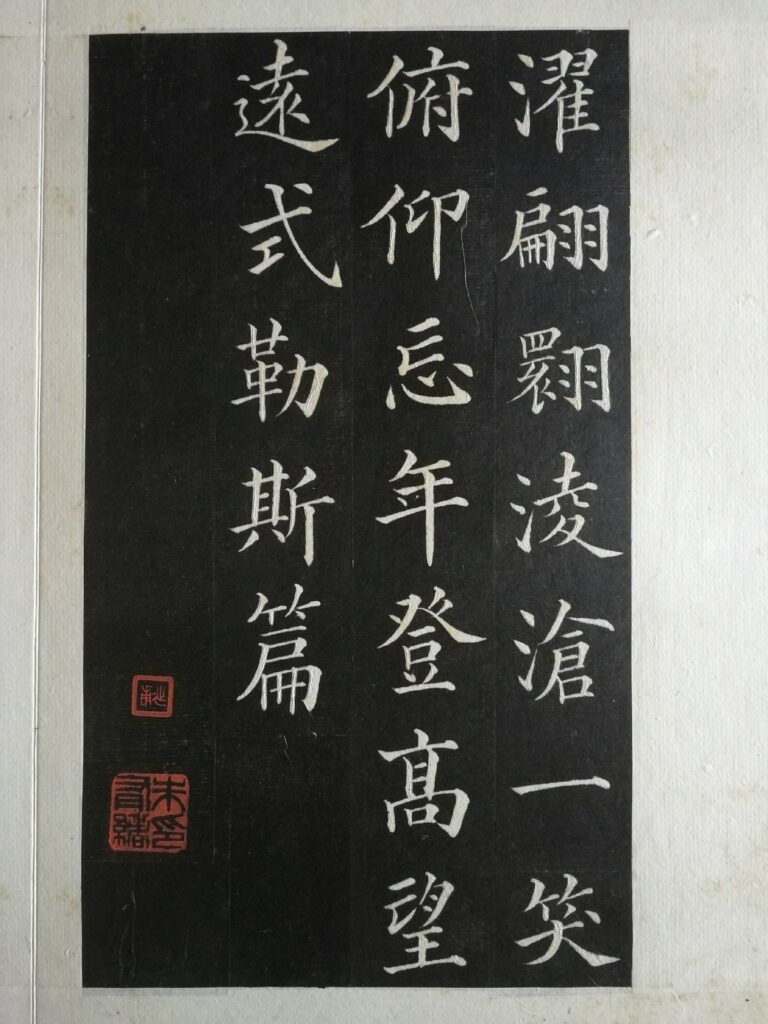 濯翩翾淩滄一笑
俯仰忘年登高望
遠式勒斯篇